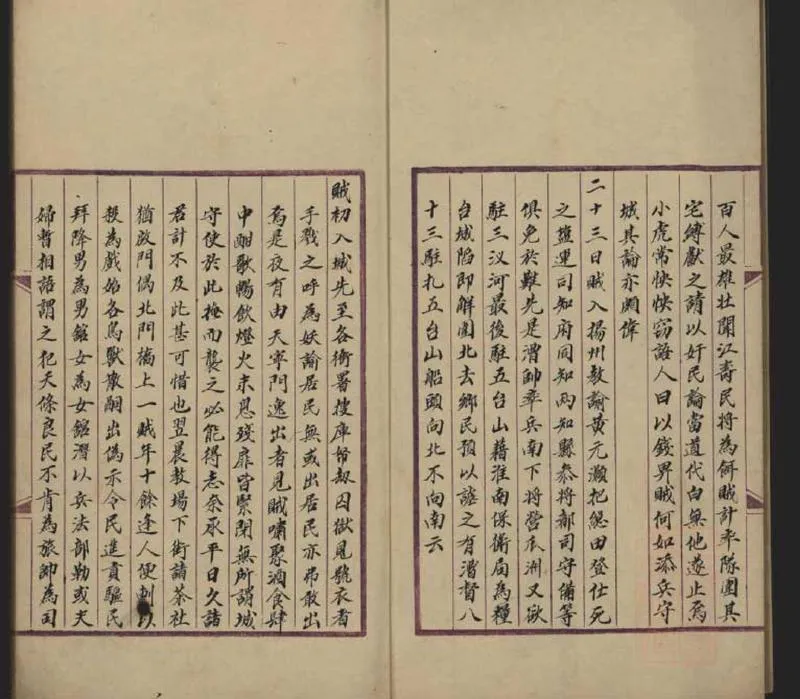 百人最雄壯聞江壽民將為餌賊計率隊圍其
宅縛獻之請以奸民論當道代白無他遂止焉
小虎常怏怏竊語人曰以錢畀賊何如添兵守
城其論亦頗偉
二十三日賊入揚州教諭黃元灝把總田登仕死
之鹽運司知府同知兩知縣參將都司守備等
俱免於難先是漕帥率兵南下將營瓜洲又欲
駐三汊河最後駐五台山藉淮南保衛局為糧
台城陷即解圍北去鄉民預以謠之有漕督八
十三駐扎五台山船頭向北不向南云
賊初入城先至各衙署搜庫帑劫囚獄見號衣者
手戮之呼為妖諭居民無或出居民亦弗敢出
焉是夜有由天寧門逸出者見賊嘯聚酒食肆
中酣歌暢飲燈火未息殘扉皆緊閉無所謂城
守使於此掩而襲之必能得志奈承平日久諸
君計不及此甚可惜也翌晨教場下街諸茶社
猶啟門偶北門橋上一賊年十餘逢人便刺以
殺為戲始各鳥獸散嗣出偽示令民進貢驅民
拜降男為男館女為女館潛以兵法部勒或夫
婦暫相語謂之犯天條良民不肯為旅帥為司